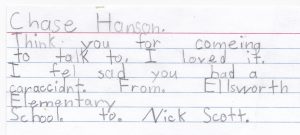 Chase Hanson.
Think. you for comeing
to talk to. I loved it.
I fel sad you had a
caracciant. From. Ellsworth
Elementary
School. to. Nick Scott.